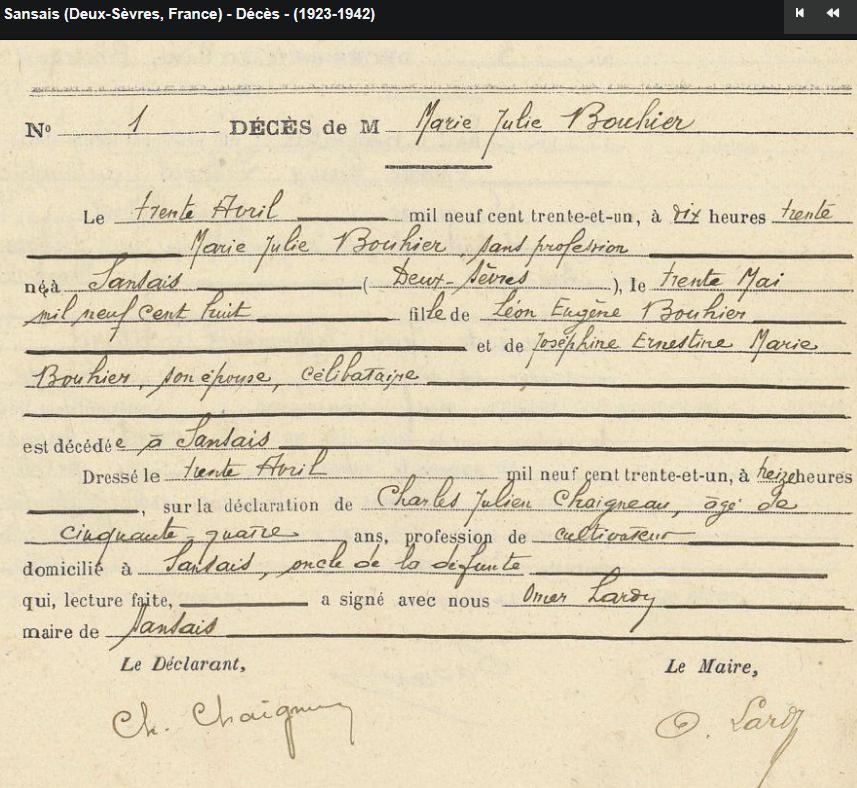 Sansais (Deux-Sèvres, France) - Décès - (1923-1942)
Nº 1 DÉCÈS de M Marie Julie Bouhier
Le trente Avril mil neuf cent trente-et-un, à dix heures trente
Marie Julie Bouhier, sans profession
née à Sansais (Deux-Sèvres), le trente Mai
mil neuf cent huit fille de Léon Eugène Bouhier
et de Joséphine Ernestine Marie
Bouhier, son épouse, célibataire
est décédée à Sansais
Dressé le trente Avril mil neuf cent trente-et-un, à heures
, sur la déclaration de Charles Julien Chaigneau, âgé de
cinquante-quatre ans, profession de cultivateur
domicilié à Sansais, oncle de la défunte
qui, lecture faite, a signé avec nous Omer Lardy
maire de Sansais
Le Déclarant, Le Maire,
Ch. Chaigneau O. Lardy